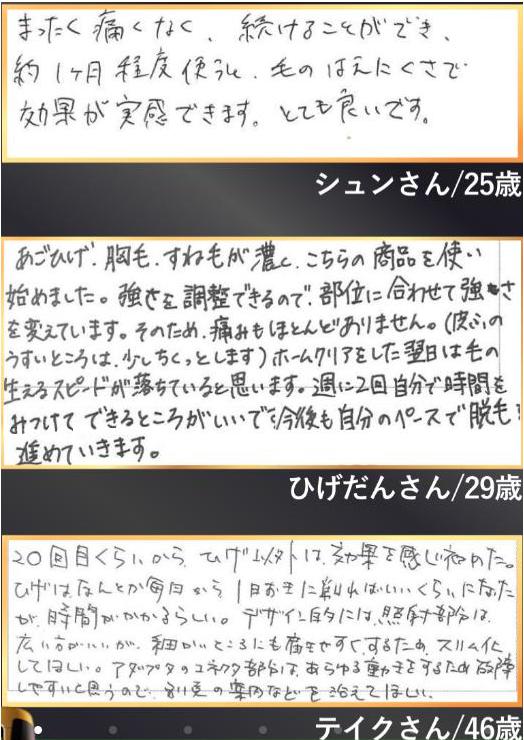 まったく痛くなく、続けることができ、
約1ヶ月程度使うと、毛のはえにくさで
効果が実感できます。とても良いです。
シュンさん/25歳
あごひげ、胸毛、すね毛が濃く、こちらの商品を使い
始めました。強さを調整できるので、部位に合わせて強さ
を変えています。そのため、痛みもほとんどありません。(皮ふの
うすいところは、少しちくっとします)ホームクリアをした翌日は毛の
生えるスピードが落ちていると思います。週に2回自分で時間を
みつけてできるところがいいです今後も自分のペースで脱毛
進めていきます。
ひげだんさん/29歳
20回目くらいから、ひげ以外は、効果を感じ初めた。
ひげはなんとか毎日から1日おきに剃ればいいくらいになった
が、時間がかかるらしい。デザイン的には、照射部分は、
広い方がいいが、細かいところにも届きやすくするため、スリム化
してほしい。アダプタのコネクタ部分は、あらゆる動きをするため故障
しやすいと思うので、別売の案内などを冶えてほしい。
テイクさん/46歳